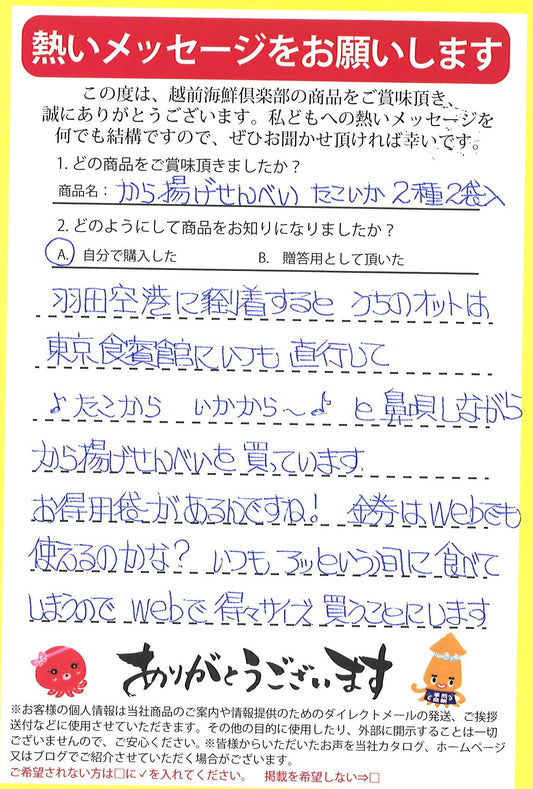 熱いメッセージをお願いします
この度は、越前海鮮倶楽部の商品をご賞味頂き、
誠にありがとうございます。私どもへの熱いメッセージを
何でも結構ですので、ぜひお聞かせ頂ければ幸いです。
1. どの商品をご賞味頂きましたか？
商品名： から揚げせんべい たこいか 2種2袋入
2. どのようにして商品をお知りになりましたか？
A. 自分で購入した B. 贈答用として頂いた
羽田空港に到着すると うちのオットは
東京食賓館にいつも直行して
♪たこから いかから〜♪ と鼻唄しながら
から揚げせんべいを買っています
お得用袋があるんですね! 金券はwebでも
使えるのかな? いつもアッという間に食べて
しまうので webで得々サイズ買うことにします
ありがとうございます
※お客様の個人情報は当社商品のご案内や情報提供のためのダイレクトメールの発送、ご挨拶
送付などに使用させていただきます。その他の目的に使用したり、外部に開示することは一切
ございませんので、ご安心ください。※皆様からいただいたお声を当社カタログ、ホームページ
又はブログでご紹介させていただく場合がございます。
ご希望されない方は□に✓を入れてください。 掲載を希望しない⇒□